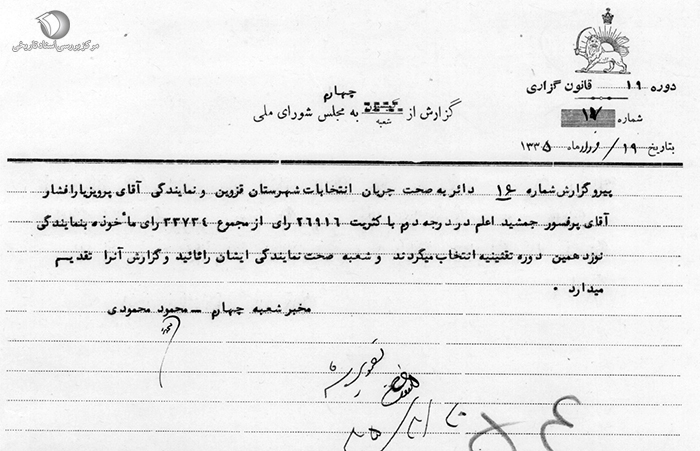 مرکز بررسی اسناد تاریخی
دوره ۱۹ قانون گزاری
شماره ۱۷
بتاریخ ۱۹/ ماه ۱۳۳۵
چهارم
گزارش از شعبه به مجلس شورای ملی
پیرو گزارش شماره ۱۶ دائر به صحت جریان انتخابات شهرستان قزوین و نمایندگی آقای پرویز یارافشار
آقای پرفسور جمشید اعلم در درجه دوم با کثریت ۲۶۹۱۶ رای از مجموع ۳۳۷۳۴ رای مأخوذه بنمایندگی
نوزدهمین دوره تقنینیه انتخاب میگردند و شعبه صحت نمایندگی ایشان را تائید و گزارش آنرا تقدیم
میدارد ۰
مخبر شعبه چهارم – محمود محمودی
تصویب شد